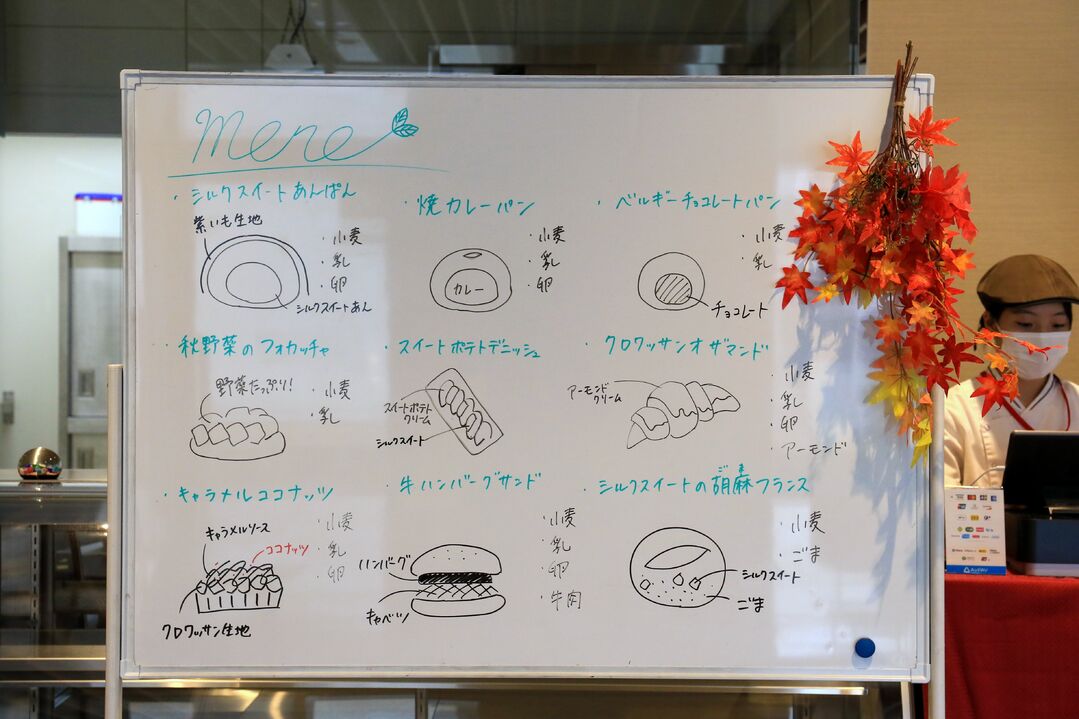 menu
・シルクスイートあんぱん
紫いも生地
・小麦
・乳
・卵
シルクスイートあん
・焼カレーパン
・小麦
・乳
・卵
カレー
・ベルギーチョコレートパン
・小麦
・乳
チョコレート
・秋野菜のフォカッチャ
野菜たっぷり！
・小麦
・乳
・スイートポテトデニッシュ
スイートポテト
クリーム
シルクスイート
・クロワッサンオザマンド
アーモンド
クリーム
・小麦
・乳
・卵
・アーモンド
・キャラメルココナッツ
キャラメルソース
ココナッツ
・小麦
・乳
・卵
クロワッサン生地
・牛ハンバーグサンド
ハンバーグ
キャベツ
・小麦
・乳
・卵
・牛肉
・シルクスイートの胡麻フランス
ごま
・小麦
・ごま
シルクスイート
ごま
AirPAY